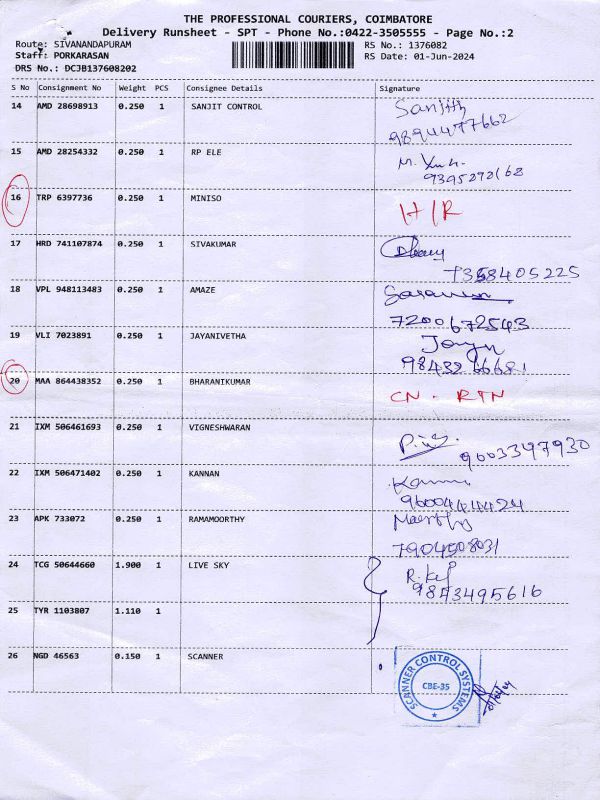 THE PROFESSIONAL COURIERS, COIMBATORE
Delivery Runsheet - SPT - Phone No.:0422-3505555 - Page No.:2
Route: SIVANANDAPURAM RS No.: 1376082
Staff: PORKARASAN RS Date: 01-Jun-2024
DRS No.: DCJB137608202
S No Consignment No Weight PCS Consignee Details Signature
14 AMD 28698913 0.250 1 SANJIT CONTROL Sanjith
9894477662
15 AMD 28254332 0.250 1 RP ELE
9395272168
16 TRP 6397736 0.250 1 MINISO H/R
17 HRD 741107874 0.250 1 SIVAKUMAR
7358405225
18 VPL 948113483 0.250 1 AMAZE Saravanan
7200672543
19 VLI 7023891 0.250 1 JAYANIVETHA
9843266681
20 MAA 864438352 0.250 1 BHARANIKUMAR CN - RTN
21 IXM 506461693 0.250 1 VIGNESHWARAN
9003397930
22 IXM 506471402 0.250 1 KANNAN
9600444424
23 APK 733072 0.250 1 RAMAMOORTHY
7904508031
24 TCG 50644660 1.900 1 LIVE SKY
9843495616
25 TYR 1103807 1.110 1
26 NGD 46563 0.150 1 SCANNER
SCANNER CONTROL SYSTEMS
CBE-35